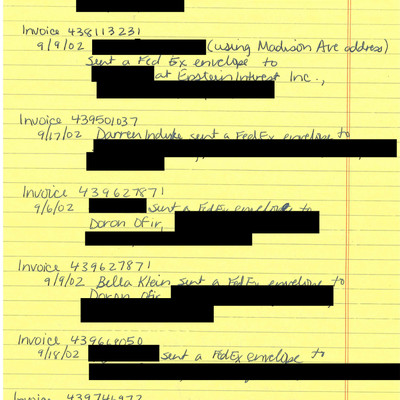 Invoice 438113231
9/9/02 (using Madison Ave address)
sent a Fed Ex envelope to
at Epstein Interest Inc.,
Invoice 439501037
9/17/02 Darren Indyke sent a FedEx envelope to
Invoice 439627871
9/6/02 sent a FedEx envelope to
Doron Ofir,
Invoice 439627871
9/9/02 Bella Klein sent a FedEx envelope to
Doron Ofir,
Invoice 439669050
9/18/02 sent a FedEx envelope to
Invoice 439746972